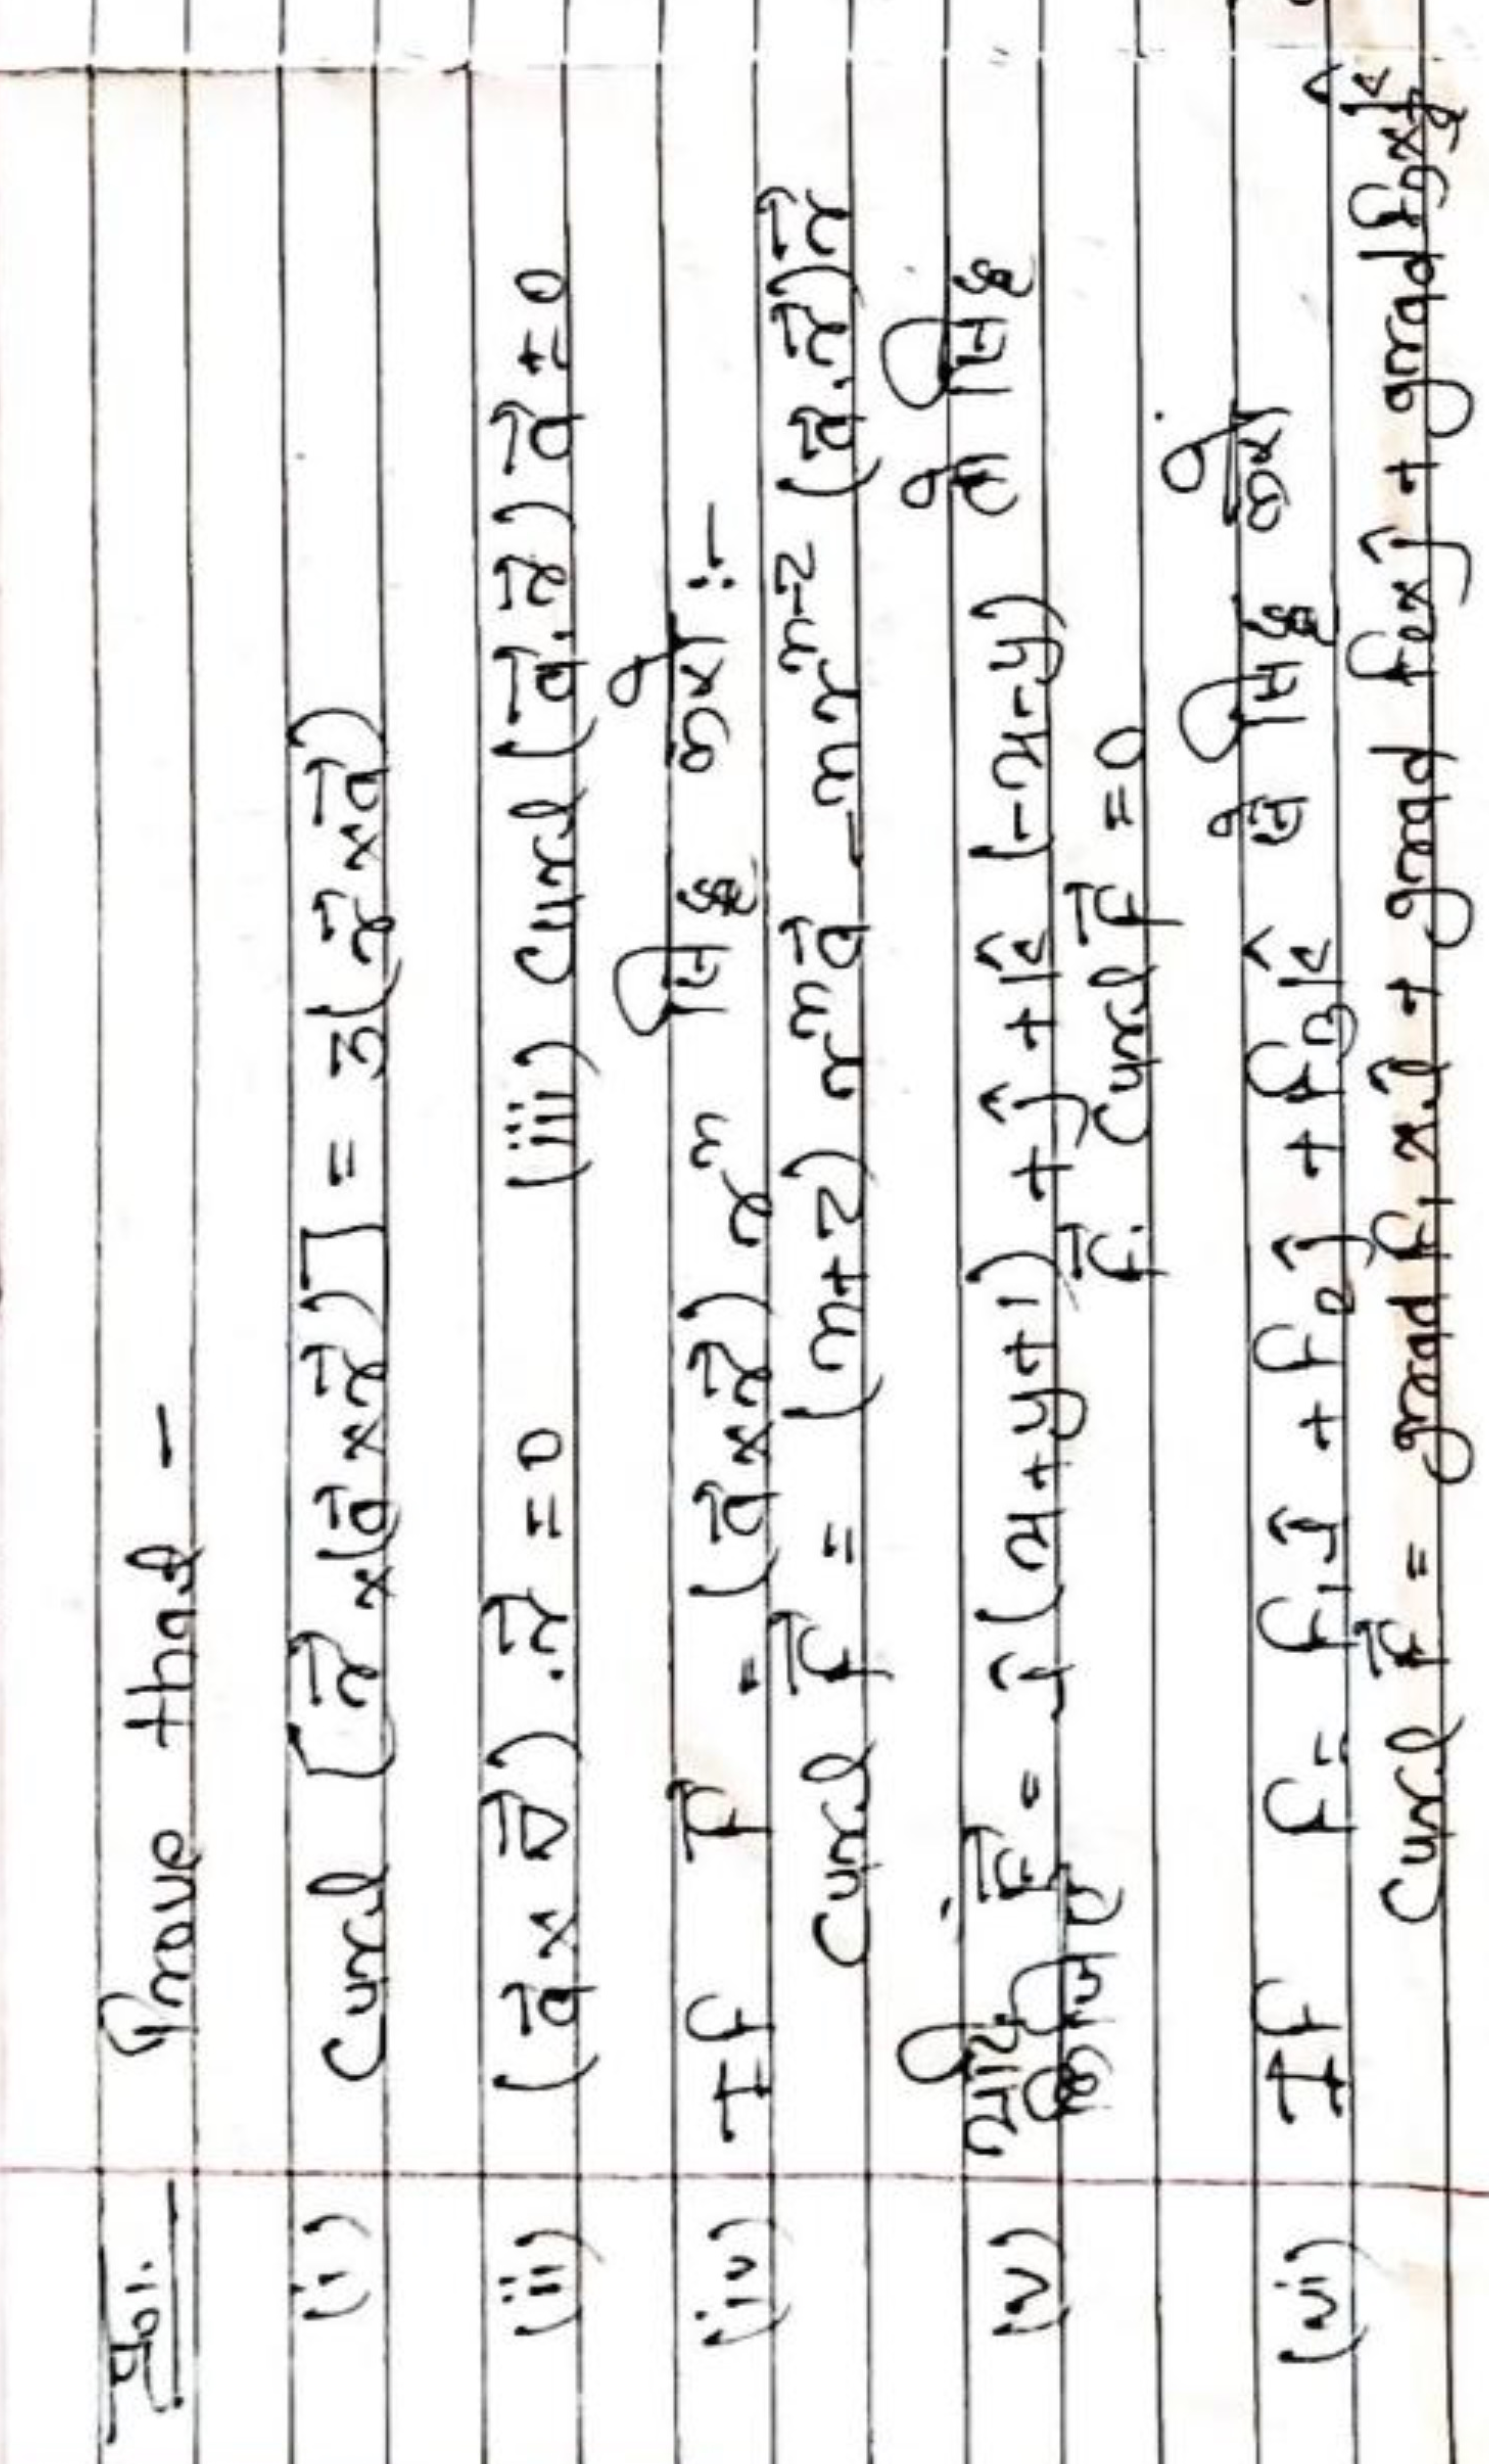 प्र०1. Prove that -
(i) Curl [r⃗ × (a⃗ × r⃗)] = 3(r⃗ × a⃗)
(ii) (a⃗ × ∇⃗) . r⃗ = 0 (iii) Curl (a⃗ . r⃗) a⃗ = 0
(iv) If F⃗ = (a⃗ × r⃗) rⁿ सिद्ध करो :-
Curl F⃗ = (n+2) rⁿ a⃗ - n rⁿ⁻² (a⃗ . r⃗) r⃗
(v) यदि F⃗ = î (x+y+1) + ĵ + k̂ (-x-y) तो सिद्ध
कीजिए F⃗ . Curl F⃗ = 0
(vi) If F = F₁î + F₂ĵ + F₃k̂ तो सिद्ध करो
Curl F⃗ = grad F₁ × î + grad F₂ × ĵ + grad F₃ × k̂